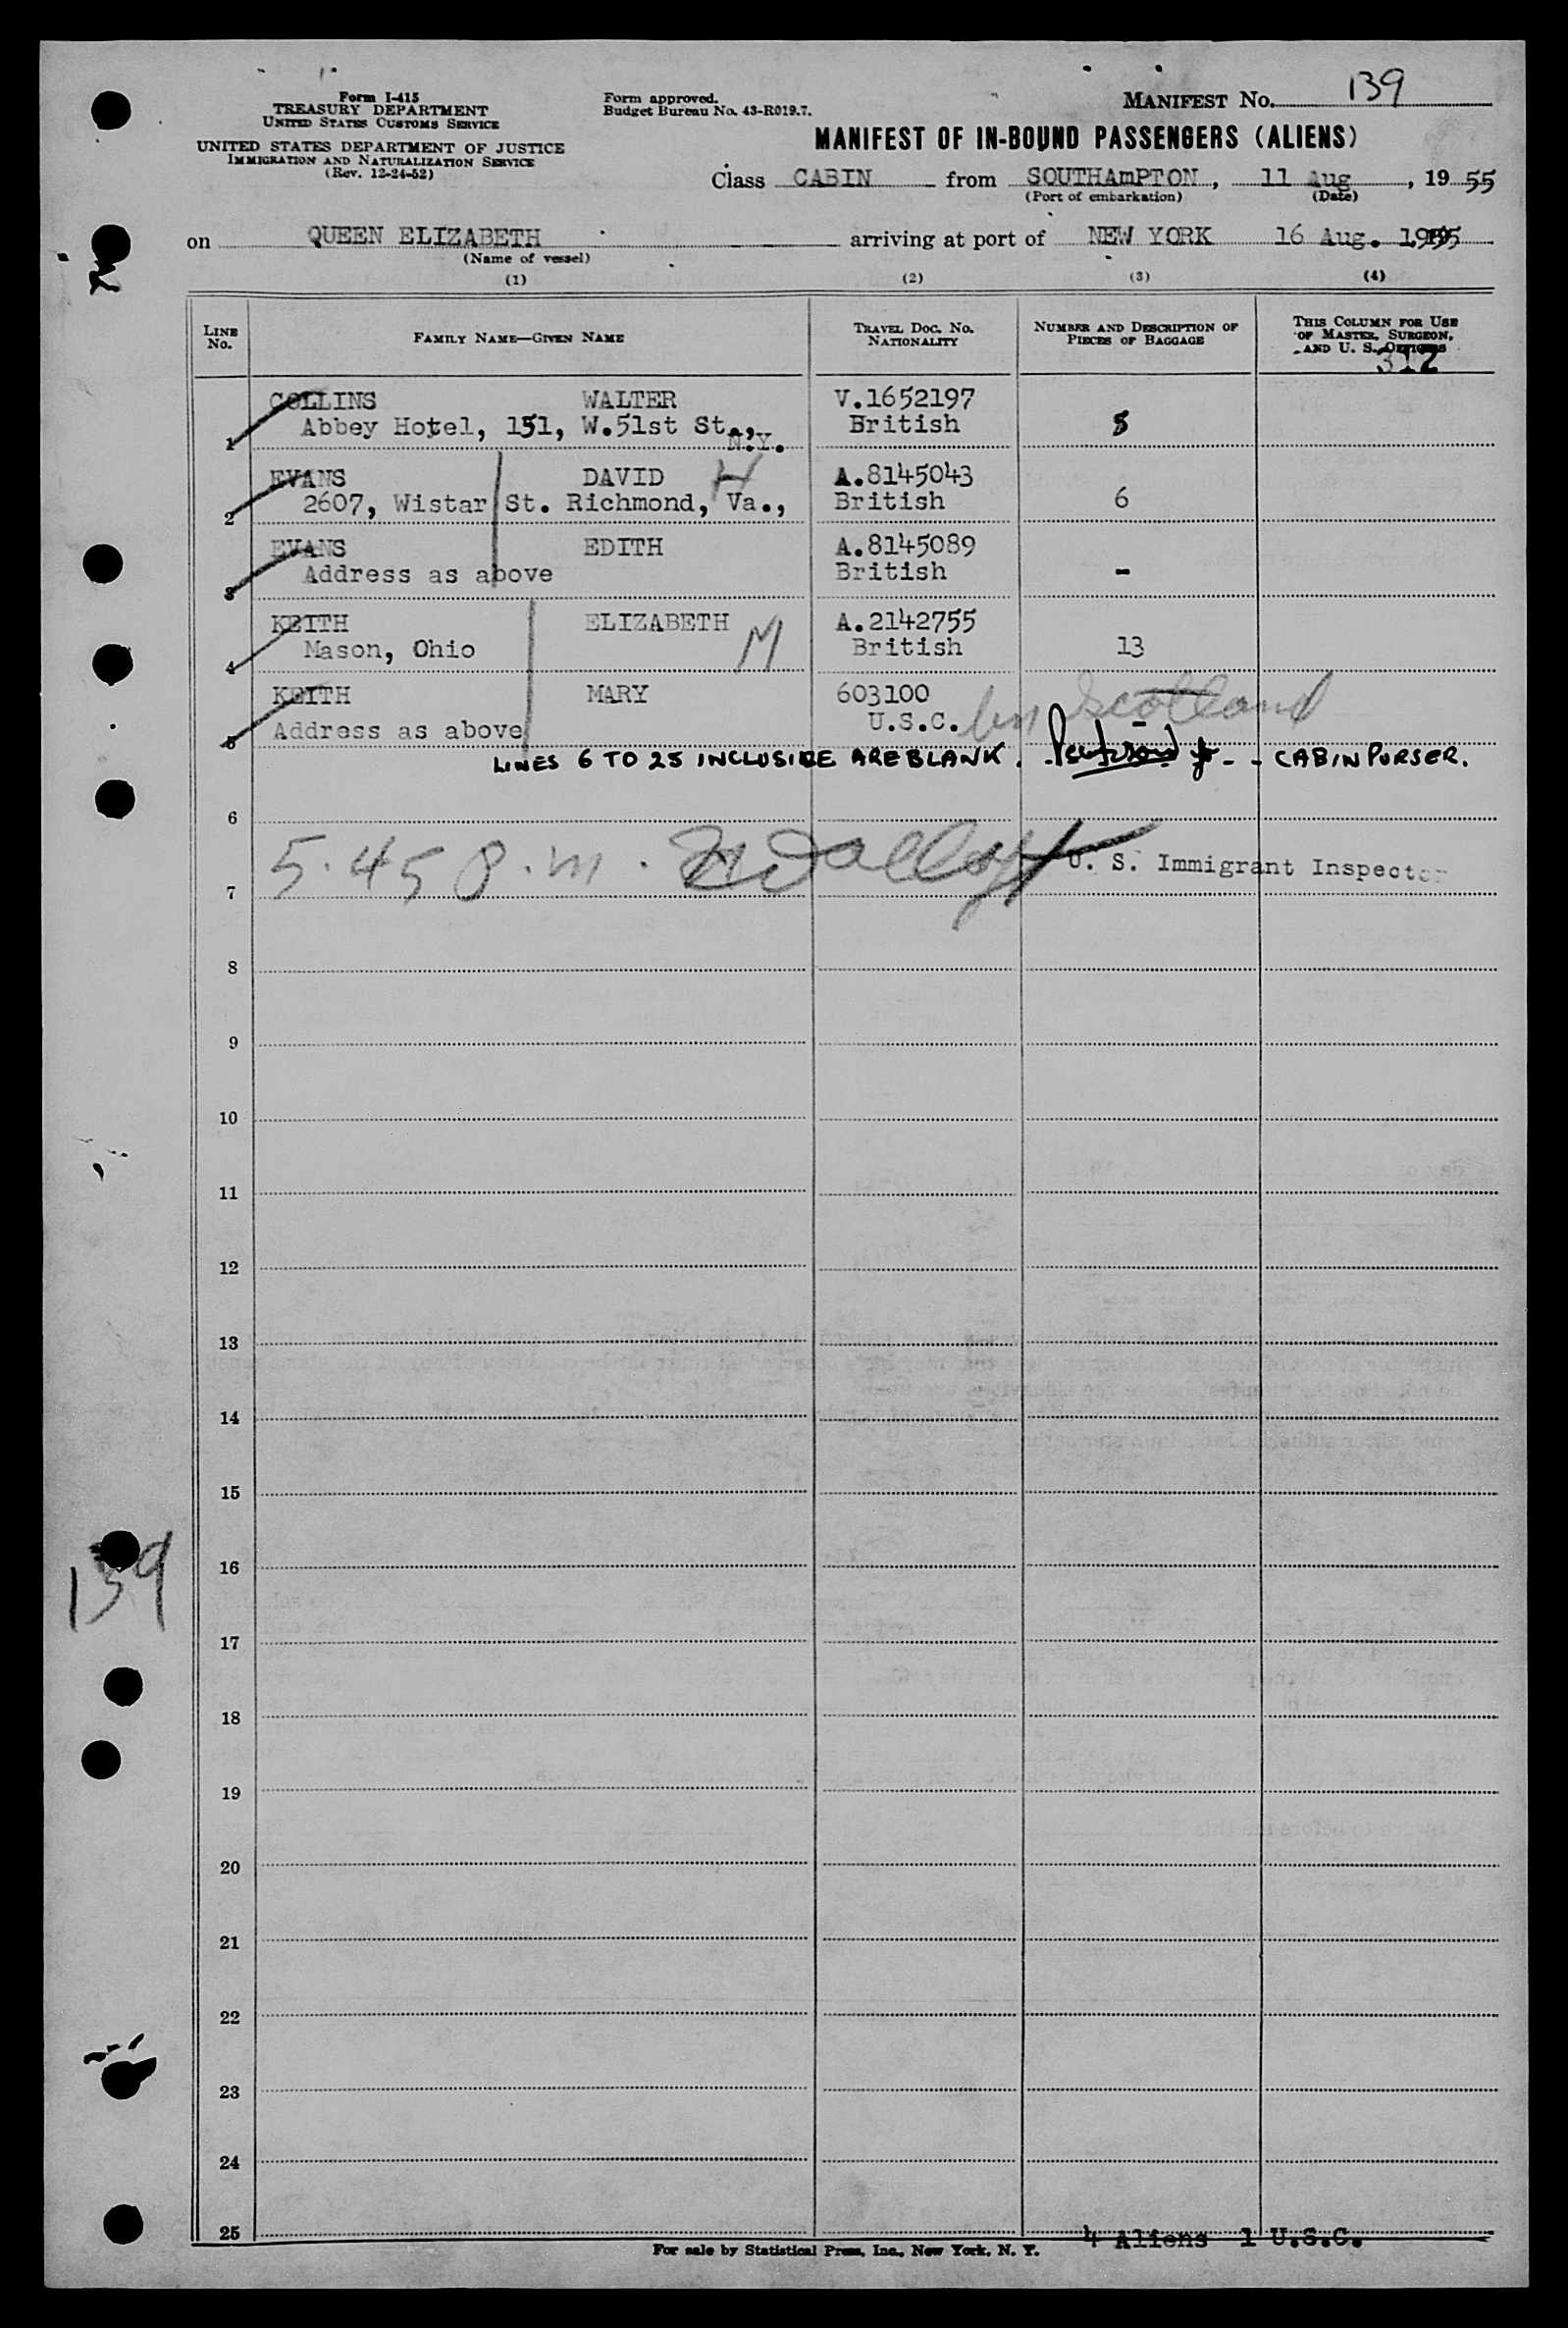 Form I-415
TREASURY DEPARTMENT
UNITED STATES CUSTOMS SERVICE
UNITED STATES DEPARTMENT OF JUSTICE
IMMIGRATION AND NATURALIZATION SERVICE
(Rev. 12-24-52)
Form approved.
Budget Bureau No. 43-R019.7.
MANIFEST No. 139
MANIFEST OF IN-BOUND PASSENGERS (ALIENS)
Class CABIN from SOUTHAmPTON, 11 Aug, 19 55
(Port of embarkation) (Date)
on QUEEN ELIZABETH arriving at port of NEW YORK 16 Aug. 1955
(Name of vessel)
(1) (2) (3) (4)
LINE No. FAMILY NAME—GIVEN NAME TRAVEL DOC. NO. NATIONALITY NUMBER AND DESCRIPTION OF PIECES OF BAGGAGE THIS COLUMN FOR USE OF MASTER, SURGEON, AND U. S. OFFICERS
312
COLLINS WALTER V.1652197
1 Abbey Hotel, 151, W.51st St., N.Y. British 5
EVANS DAVID H A.8145043
2 2607, Wistar St. Richmond, Va., British 6
EVANS EDITH A.8145089
3 Address as above British -
KEITH ELIZABETH A.2142755
4 Mason, Ohio M British 13
KEITH MARY 603100
5 Address as above U.S.C. Scotland -
LINES 6 TO 25 INCLUSIVE ARE BLANK. CABIN PURSER.
6
5.45 p.m. U. S. Immigrant Inspector
7
8
9
10
11
12
13
14
15
139
16
17
18
19
20
21
22
23
24
25
4 Aliens 1 U.S.C.
For sale by Statistical Press, Inc., New York, N. Y.